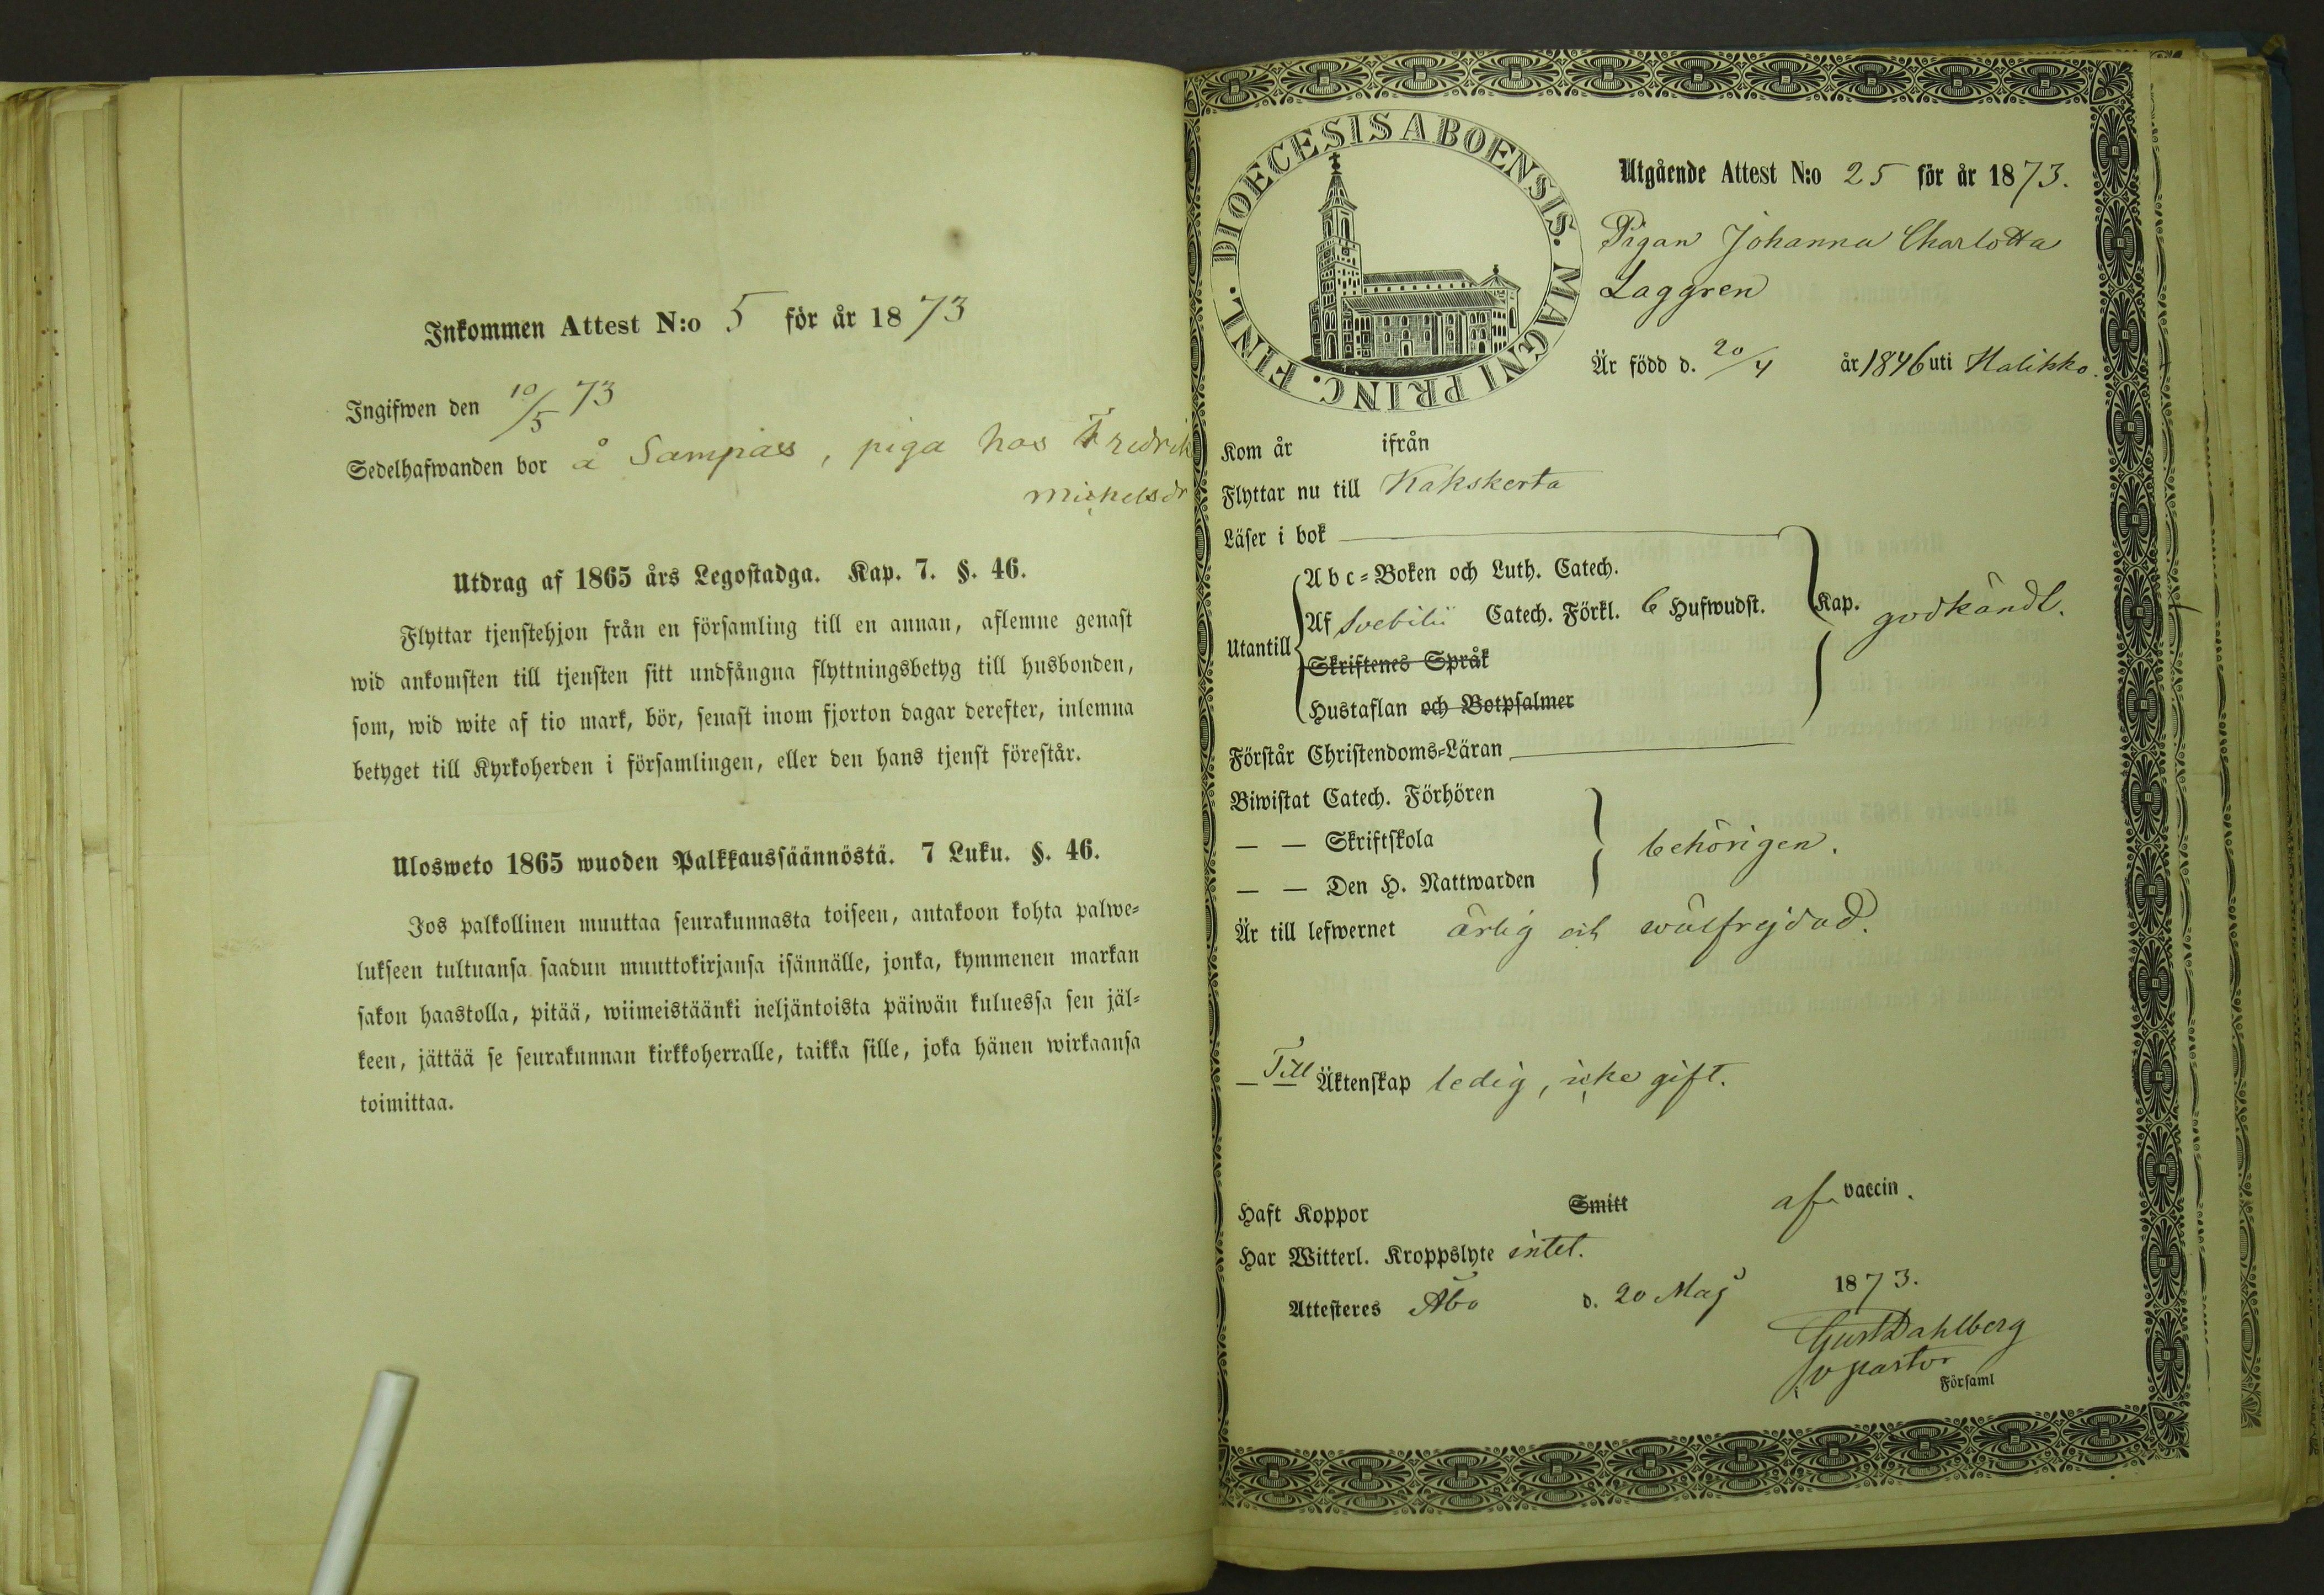 Inkommen Attest N:o 5 för år 1873
Ingifwen den 10/5 73
Sedelhafwanden bor å Sampais, piga hos Fredrik
Michelsdr
Utdrag af 1865 års Legostadga. Kap. 7. §. 46.
Flyttar tjenstehjon från en församling till en annan, aflemne genast
wid ankomsten till tjensten sitt undfångna flyttningsbetyg till husbonden,
som, wid wite af tio mark, bör, senast inom fjorton dagar derefter, inlemna
betyget till Kyrkoherden i församlingen, eller den hans tjenst förestår.
Ulosweto 1865 wuoden Palkkaussäännöstä. 7 Luku. §. 46.
Jos palkollinen muuttaa seurakunnasta toiseen, antakoon kohta palwe-
lukseen tultuansa saadun muuttokirjansa isännälle, jonka, kymmenen markan
sakon haastolla, pitää, wiimeistäänki neljäntoista päiwän kuluessa sen jäl-
keen, jättää se seurakunnan kirkkoherralle, taikka sille, joka hänen wirkaansa
toimittaa.
DIOECESIS ABOENSIS. MAGNI PRINC. FINL.
Utgående Attest N:o 25 för år 1873.
Pigan Johanna Charlotta
Laggren
Är född d. 20/4 år 1846 uti Halikko.
Kom år ifrån
Flyttar nu till Kakskerta
Läser i bok
Utantill
Abc-Boken och Luth. Catech.
Af Svebilii Catech. Förkl. 6 Hufwudst. Kap. godkändt.
Skriftenes Språk
Hustaflan och Botpsalmer
Förstår Christendoms-Läran
Biwistat Catech. Förhören
— — Skriftskola behörigen.
— — Den H. Nattwarden
Är till lefwernet ärlig och wälfrejdad.
— Till Äktenskap ledig, icke gift.
Haft Koppor Smitt af vaccin.
Har Witterl. Kroppslyte intet.
Attesteres Åbo d. 20 Maj 1873.
Gust Dahlberg
v pastor
Församl